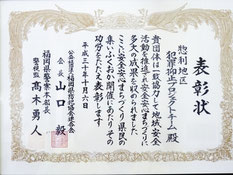 表彰状
惣利地区
犯罪抑止プロジェクトチーム 殿
貴団体は一致協力して地域安全
活動を推進され安全安心まちづくりに
多大の成果を収められました
ここに安全安心まちづくり県民の
集いふくおか開催にあたりその
功労をたたえ表彰します
平成三十年十月六日
会長 山口 毅
福岡県警察本部長
警視監 高木勇人